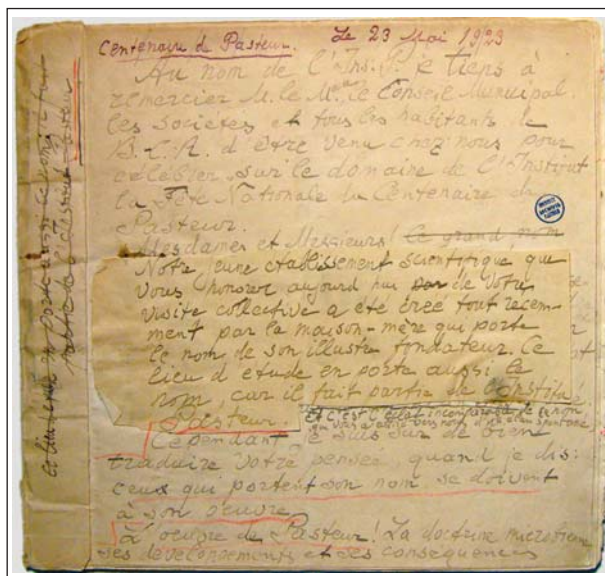 Centenaire de Pasteur. Le 23 Mai 1923
Au nom de l'Ins. P. je tiens à
remercier M. le M. le Conseil Municipal
les sociétés et tous les habitants de
B.-C.A. d'être venu chez nous pour
célébrer sur le domaine de l'Institut
la Fête Nationale du Centenaire de
Pasteur.
Mesdames et Messieurs! Le grand nom
Notre jeune etablissement scientifique que
vous honorez aujourd hui de votre
visite collective a été créé tout recem-
ment par la maison-mère qui porte
le nom de son illustre fondateur. Ce
lieu d'etude en porte aussi le
nom, car il fait partie de l'Institut
Pasteur. Et c'est l'éclat incomparable de ce nom
qui vous a attiré vers nous d'un élan spontané
Cependant, je suis sur de bien
traduire votre pensée, quand je dis:
ceux qui portent son nom se doivent
à son oeuvre
L'oeuvre de Pasteur! La doctrine microbienne
ses developpements et ses consequences
porte aussi ce nom, il fait
partie de l'Institut Pasteur